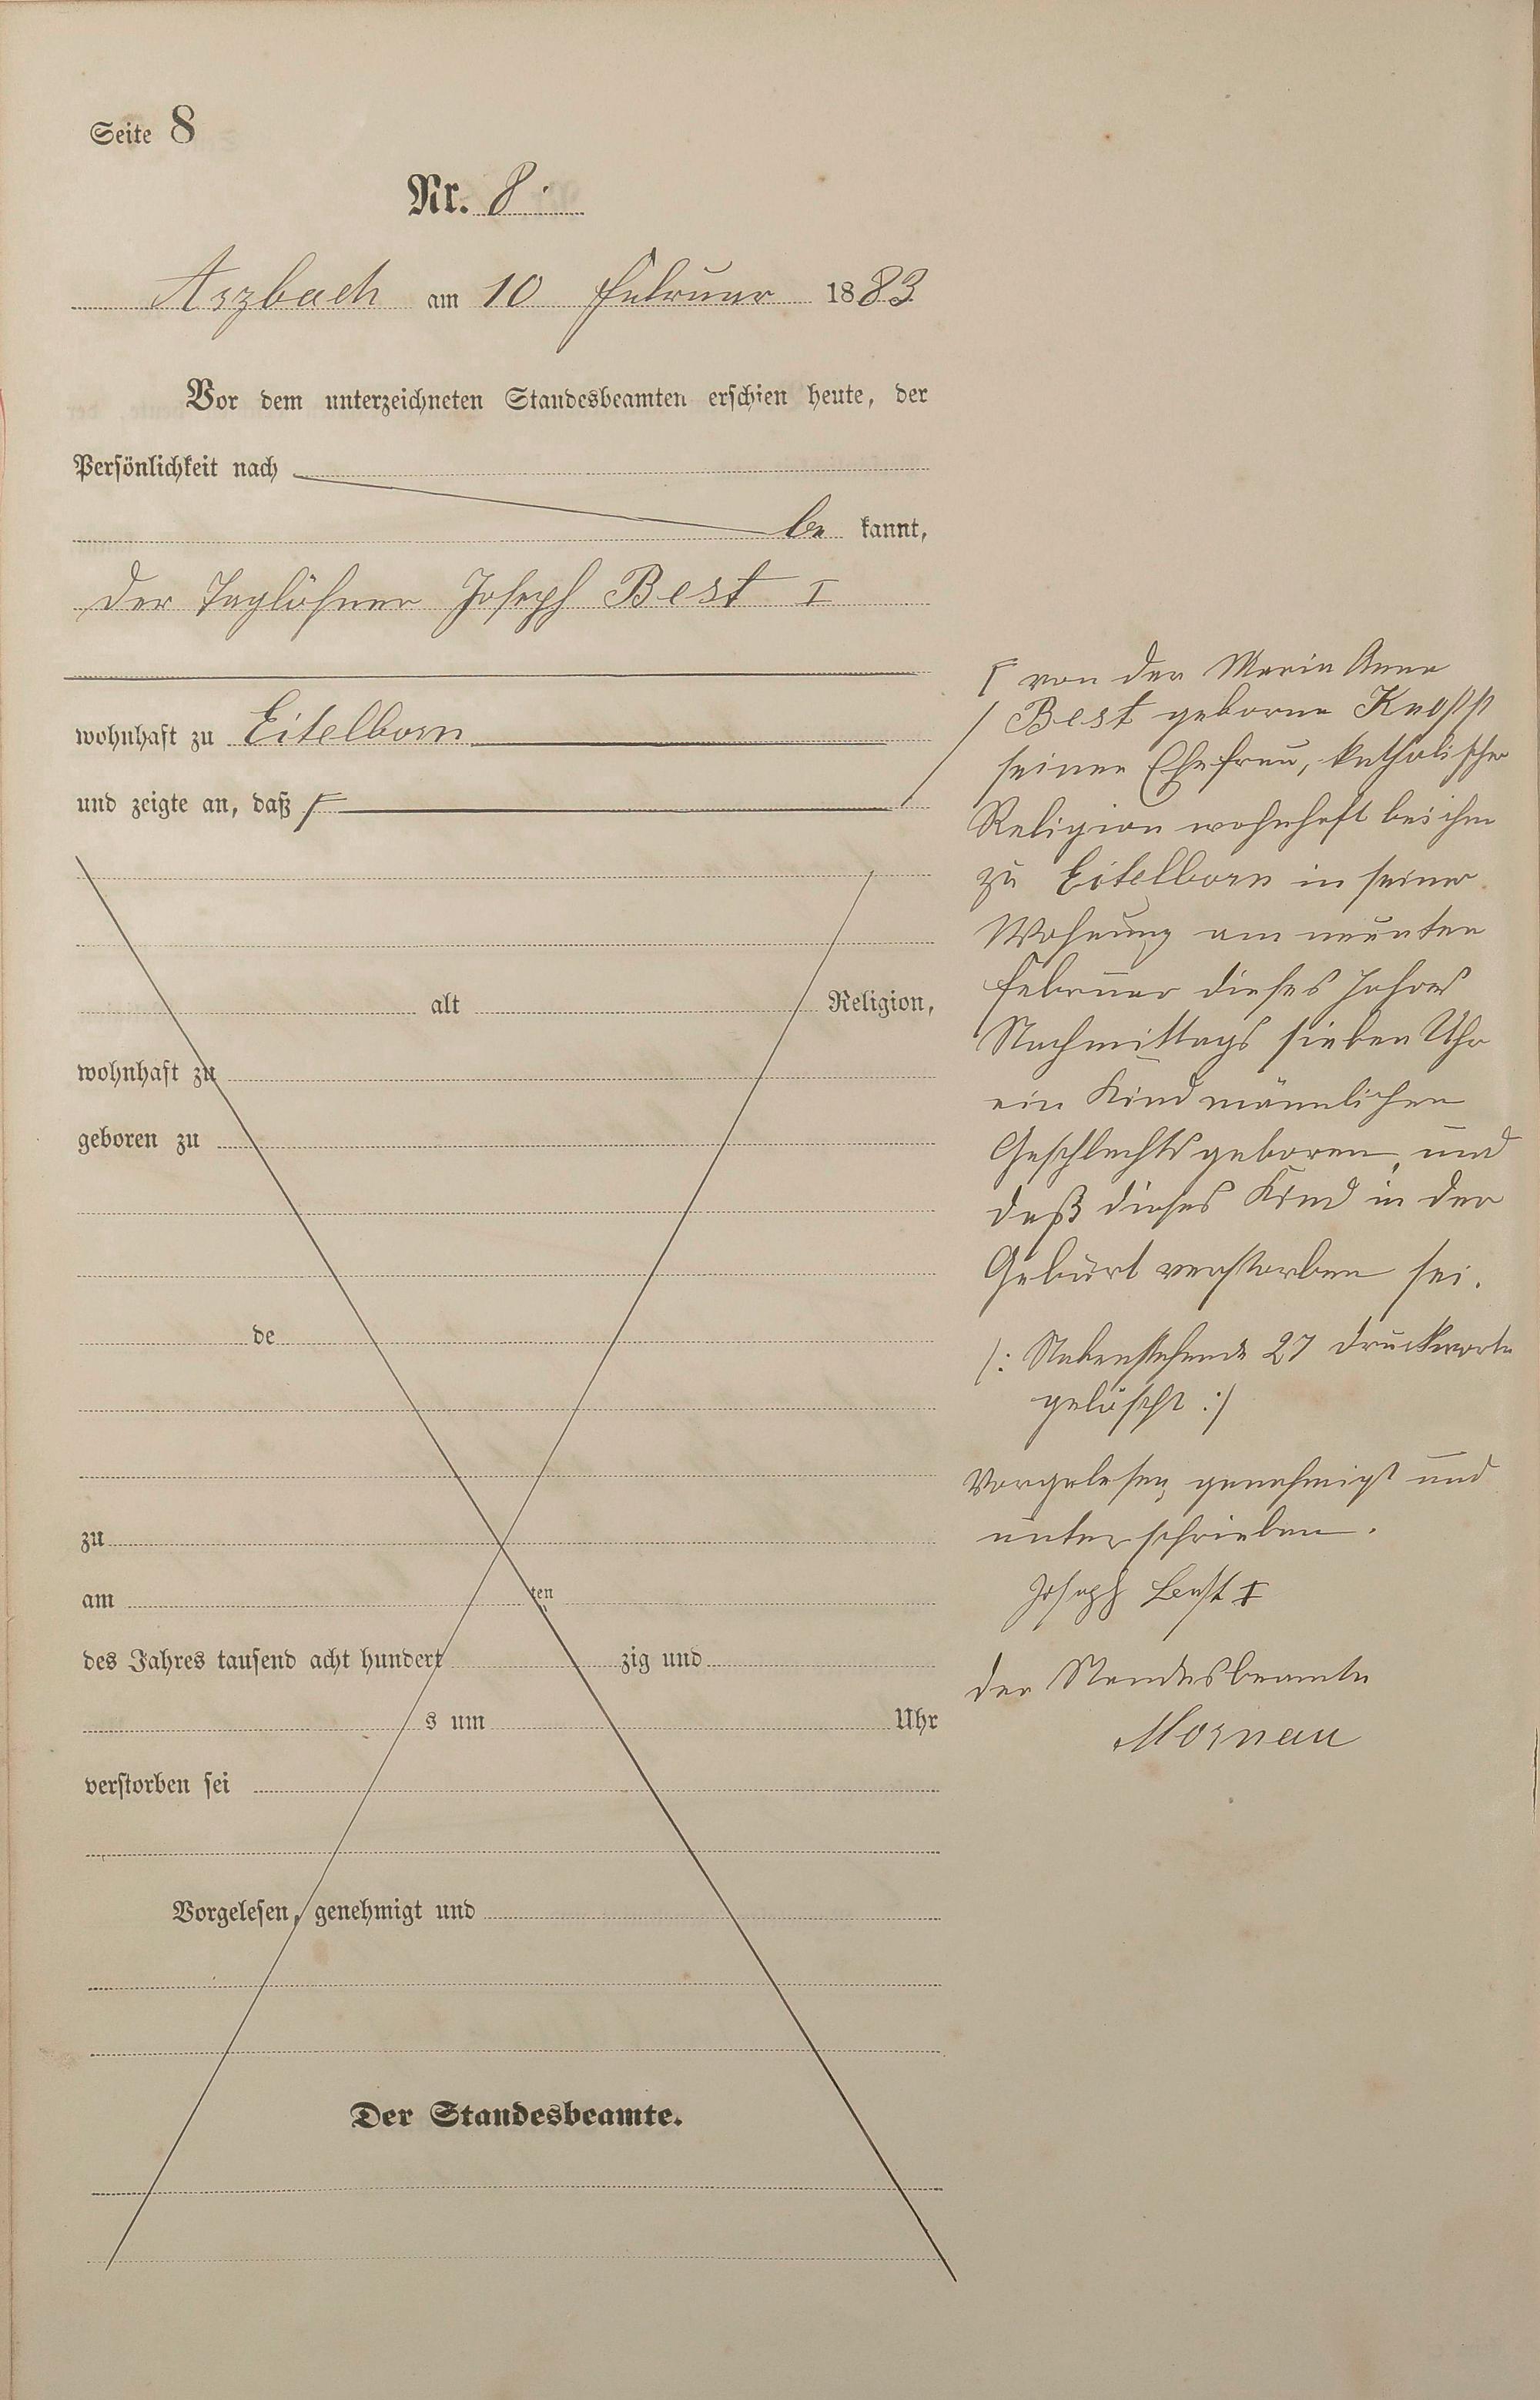 Seite 8
Nr. 8.
Arzbach am 10 Februar 1883
Vor dem unterzeichneten Standesbeamten erschien heute, der
Persönlichkeit nach
be kannt,
der Taglöhner Joseph Best I
wohnhaft zu Eitelborn
und zeigte an, daß
alt Religion,
wohnhaft zu
geboren zu
de
zu
am ten
des Jahres tausend acht hundert zig und
s um Uhr
verstorben sei
Vorgelesen, genehmigt und
Der Standesbeamte.
von der Maria Anna
Best geborne
seiner Ehefrau, katholischer
Religion wohnhaft bei ihm
zu Eitelborn in seiner
Wohnung am neunten
Februar dieses Jahres
Nachmittags sieben Uhr
ein Kind männlichen
Geschlechts geboren, und
daß dieses Kind in der
Geburt verstorben sei.
/: Nebenstehende 27 Druckworte
gelöscht :/
Vorgelesen, genehmigt und
unterschrieben.
Joseph Best I
der Standesbeamte